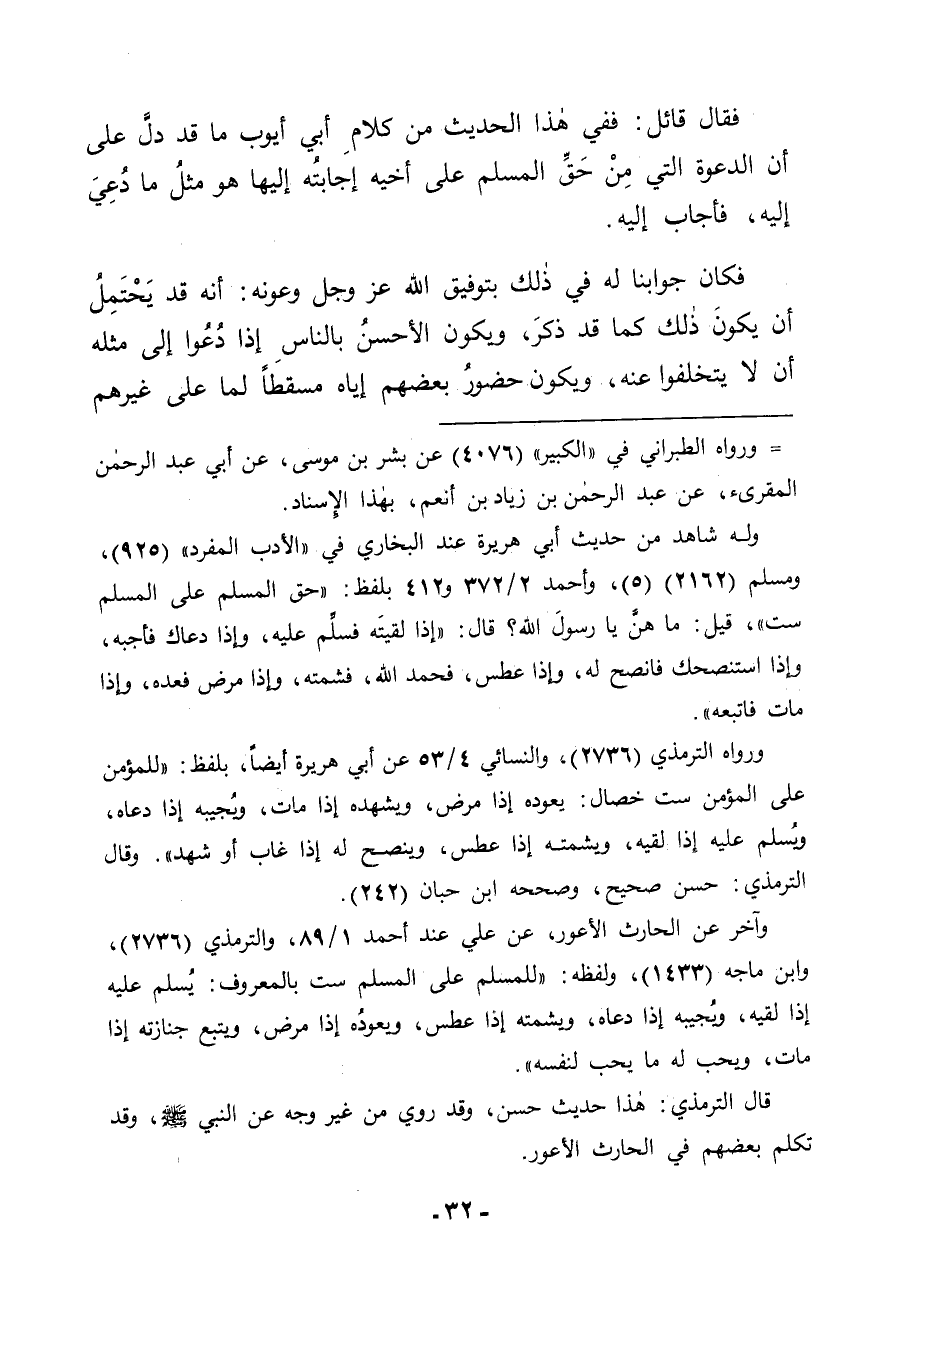 فقال قائل: ففي هٰذا الحديث من كلامِ أبي أيوب ما قد دلَّ على
أن الدعوة التي مِنْ حَقِّ المسلم على أخيه إجابتُه إليها هو مثلُ ما دُعِيَ
إليه، فأجاب إليه.
فكان جوابنا له في ذٰلك بتوفيق الله عز وجل وعونه: أنه قد يَحْتَمِلُ
أن يكونَ ذٰلك كما قد ذكرَ، ويكون الأحسنُ بالناسِ إذا دُعُوا إلى مثله
أن لا يتخلفوا عنه، ويكون حضورُ بعضهم إياه مسقطاً لما على غيرهم
= ورواه الطبراني في «الكبير» (٤٠٧٦) عن بشر بن موسى، عن أبي عبد الرحمٰن
المقرىء، عن عبد الرحمٰن بن زياد بن أنعم، بهٰذا الإِسناد.
وله شاهد من حديث أبي هريرة عند البخاري في «الأدب المفرد» (٩٢٥)،
ومسلم (٢١٦٢) (٥)، وأحمد ٣٧٢/٢ و٤١٢ بلفظ: «حق المسلم على المسلم
ست»، قيل: ما هنَّ يا رسولَ الله؟ قال: «إذا لقيتَه فسلِّم عليه، وإذا دعاك فأجبه،
وإذا استنصحك فانصح له، وإذا عطس، فحمد الله، فشمته، وإذا مرض فعده، وإذا
مات فاتبعه».
ورواه الترمذي (٢٧٣٦)، والنسائي ٥٣/٤ عن أبي هريرة أيضاً، بلفظ: «للمؤمن
على المؤمن ست خصال: يعوده إذا مرض، ويشهده إذا مات، ويُجيبه إذا دعاه،
ويُسلم عليه إذا لقيه، ويشمته إذا عطس، وينصح له إذا غاب أو شهد». وقال
الترمذي: حسن صحيح، وصححه ابن حبان (٢٤٢).
وآخر عن الحارث الأعور، عن علي عند أحمد ٨٩/١، والترمذي (٢٧٣٦)،
وابن ماجه (١٤٣٣)، ولفظه: «للمسلم على المسلم ست بالمعروف: يُسلم عليه
إذا لقيه، ويُجيبه إذا دعاه، ويشمته إذا عطس، ويعودُه إذا مرض، ويتبع جنازته إذا
مات، ويحب له ما يحب لنفسه».
قال الترمذي: هٰذا حديث حسن، وقد روي من غير وجه عن النبي ﷺ، وقد
تكلم بعضهم في الحارث الأعور.
- ٣٢ -